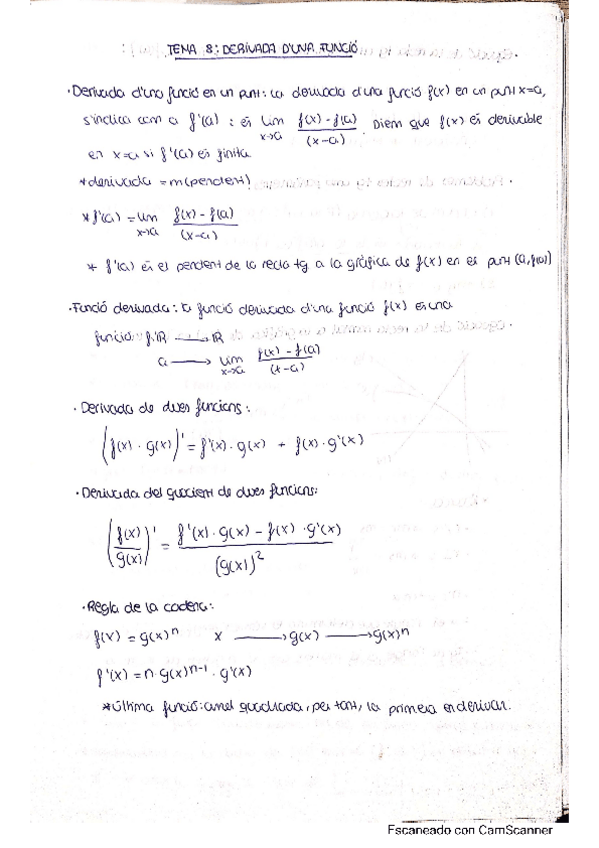 TEMA 8: DERIVADA D'UNA FUNCIÓ
· Derivada d'una funció en un punt: La derivada d'una funció f(x) en un punt x=a,
s'indica com a f'(a) : és lim x→a (f(x) - f(a)) / (x-a) . Diem que f(x) és derivable
en x=a si f'(a) és finita.
*derivada = m (pendent)
* f'(a) = lim x→a (f(x) - f(a)) / (x-a)
* f'(a) és el pendent de la recta tg a la gràfica de f(x) en es punt (a, f(a))
· Funció derivada: la funció derivada d'una funció f(x) és una
funció: f'R → R
a → lim x→a (f(x) - f(a)) / (x-a)
· Derivada de dues funcions:
(f(x) · g(x))' = f'(x) · g(x) + f(x) · g'(x)
· Derivada del quocient de dues funcions:
(f(x) / g(x))' = (f'(x) · g(x) - f(x) · g'(x)) / (g(x))²
· Regla de la cadena:
f(x) = g(x)ⁿ x → g(x) → g(x)ⁿ
f'(x) = n · g(x)ⁿ⁻¹ · g'(x)
*última funció: arrel quadrada, per tant, la primera en derivar.
Escaneado con CamScanner